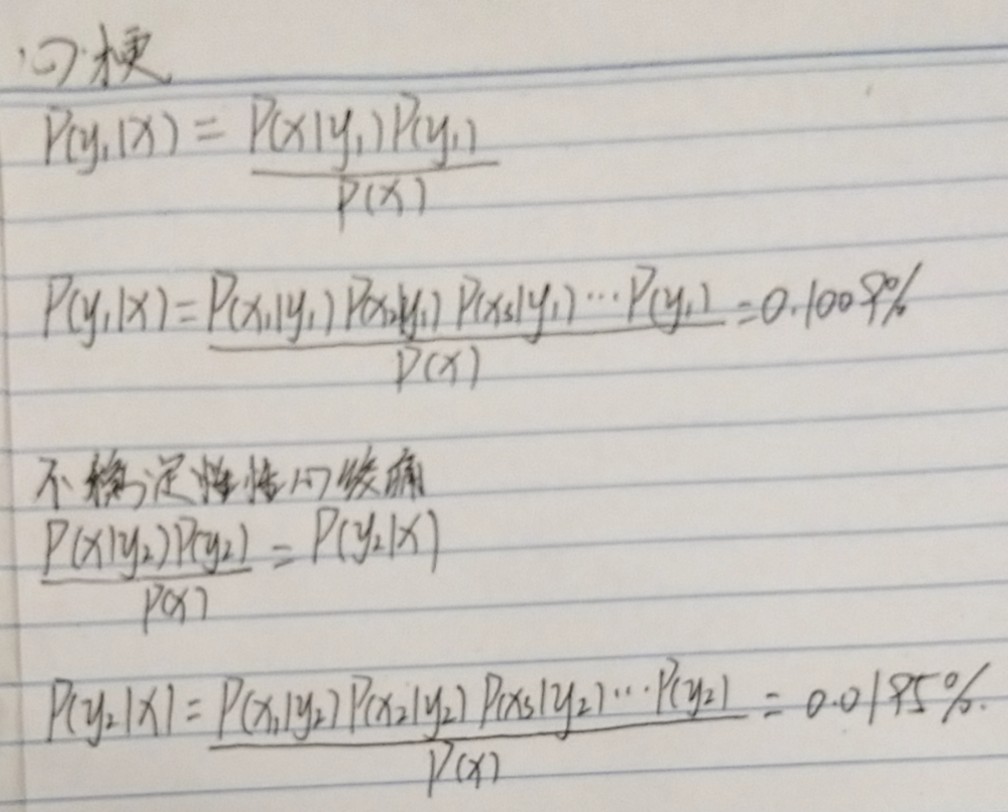 心梗
P(y₁|x) = P(x|y₁)P(y₁) / P(x)
P(y₁|x) = P(x₁|y₁) P(x₂|y₁) P(x₃|y₁) ··· P(y₁) / P(x) = 0.1009%
不稳定性心绞痛
P(x|y₂)P(y₂) / P(x) = P(y₂|x)
P(y₂|x) = P(x₁|y₂) P(x₂|y₂) P(x₃|y₂) ··· P(y₂) / P(x) = 0.0195%.